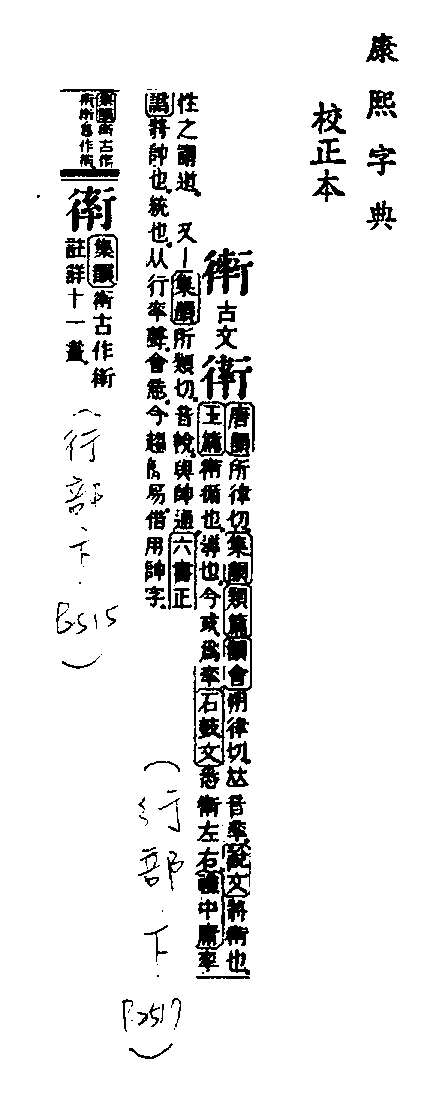 康熙字典
校正本
衛
古文
衛
唐韻所律切集韻類篇韻會朔律切𠀤音率說文將衛也
玉篇衛循也導也今或為率石鼓文悉衛左右護中庸率
性之謂道又
集韻所類切音帥與帥通六書正
譌將帥也統也从行率聲會意今趨簡易借用帥字
集韻衛古作
衛
集韻衛古作衛
註詳十一畫
(行部下.P.2517)
(行部下.P.2515)